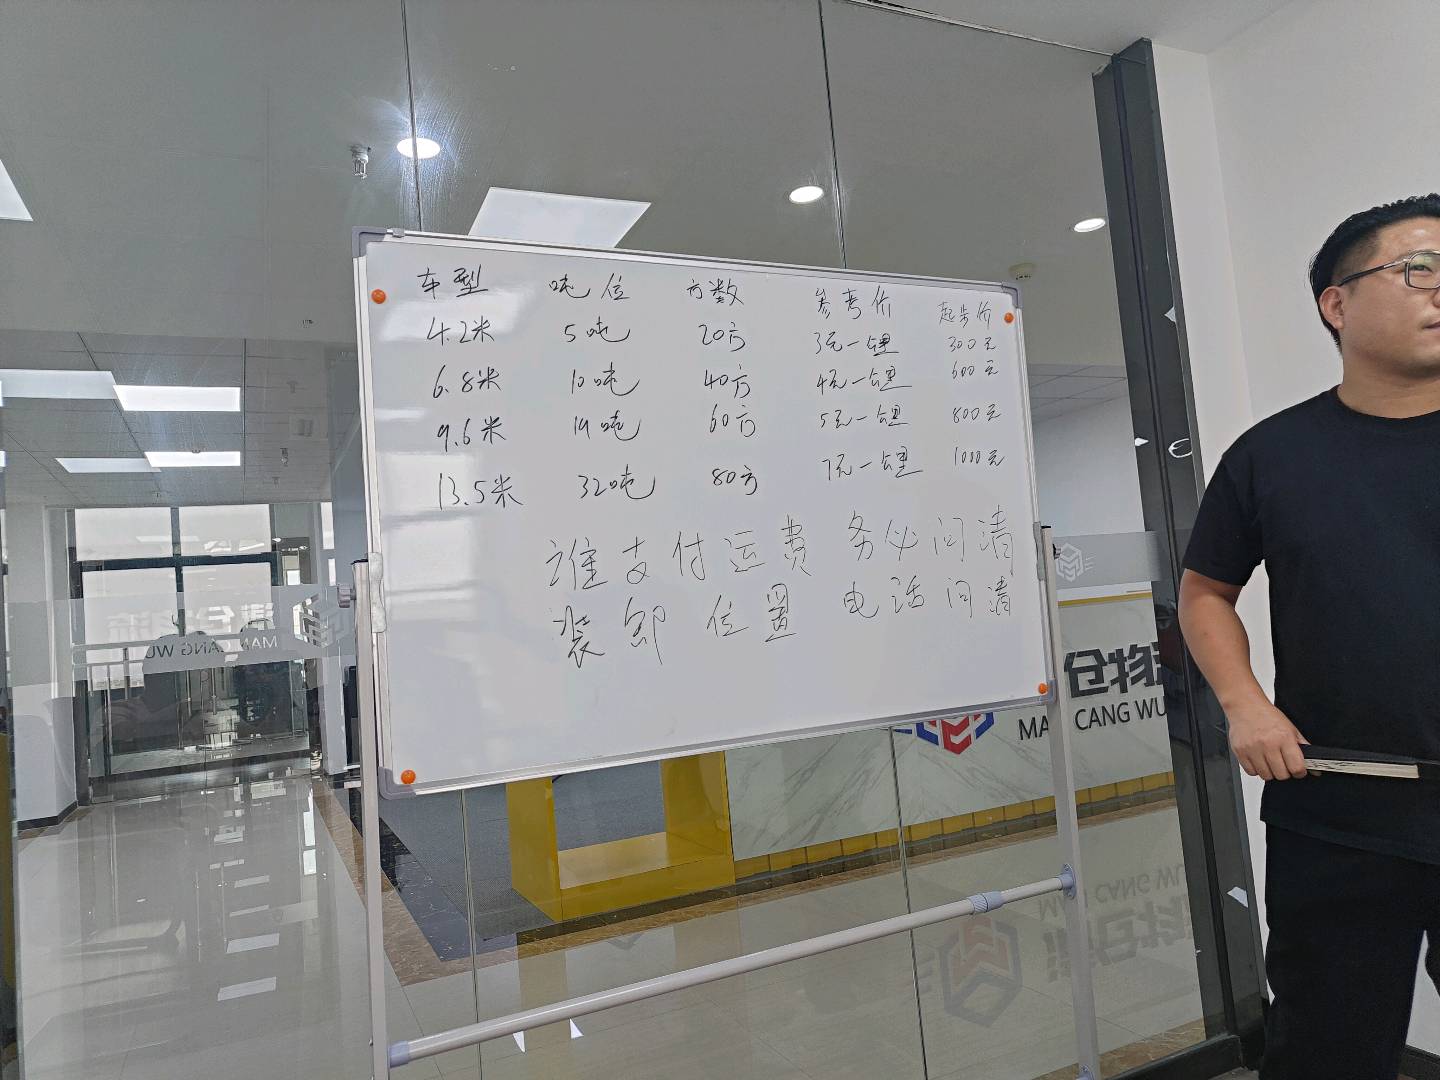 车型 吨位 方数 参考价 起步价
4.2米 5吨 20方 3元一公里 300元
6.8米 10吨 40方 4元一公里 600元
9.6米 19吨 60方 5元一公里 800元
13.5米 32吨 80方 7元一公里 1000元
谁支付运费 务必问清
装卸位置 电话问清
满仓物流
MAN CANG WU
仓物
MAN CANG WU